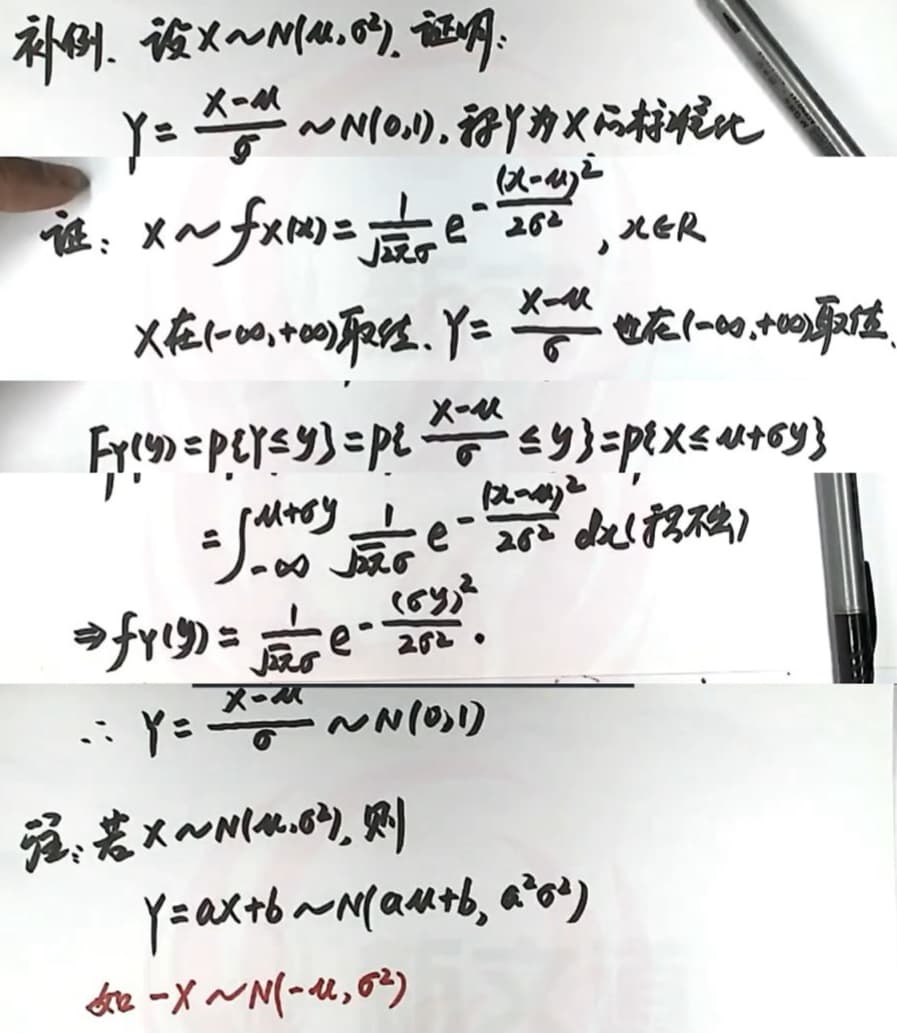 补例. 设X~N(μ,σ²). 证明:
Y = (X-μ)/σ ~ N(0,1). 称Y为X的标准化
证: X ~ f_X(x) = 1/(√2π σ) e^{-(x-μ)²/(2σ²)}, x∈R
X在(-∞,+∞)取值. Y = (X-μ)/σ 也在(-∞,+∞)取值.
F_Y(y) = P{Y≤y} = P{(X-μ)/σ ≤ y} = P{X≤μ+σy}
= ∫_{-∞}^{μ+σy} 1/(√2π σ) e^{-(x-μ)²/(2σ²)} dx (积不出)
⇒ f_Y(y) = 1/(√2π σ) e^{-(σy)²/(2σ²)} ·
∴ Y = (X-μ)/σ ~ N(0,1)
注: 若X~N(μ,σ²), 则
Y = aX+b ~ N(aμ+b, a²σ²)
如 -X ~ N(-μ, σ²)